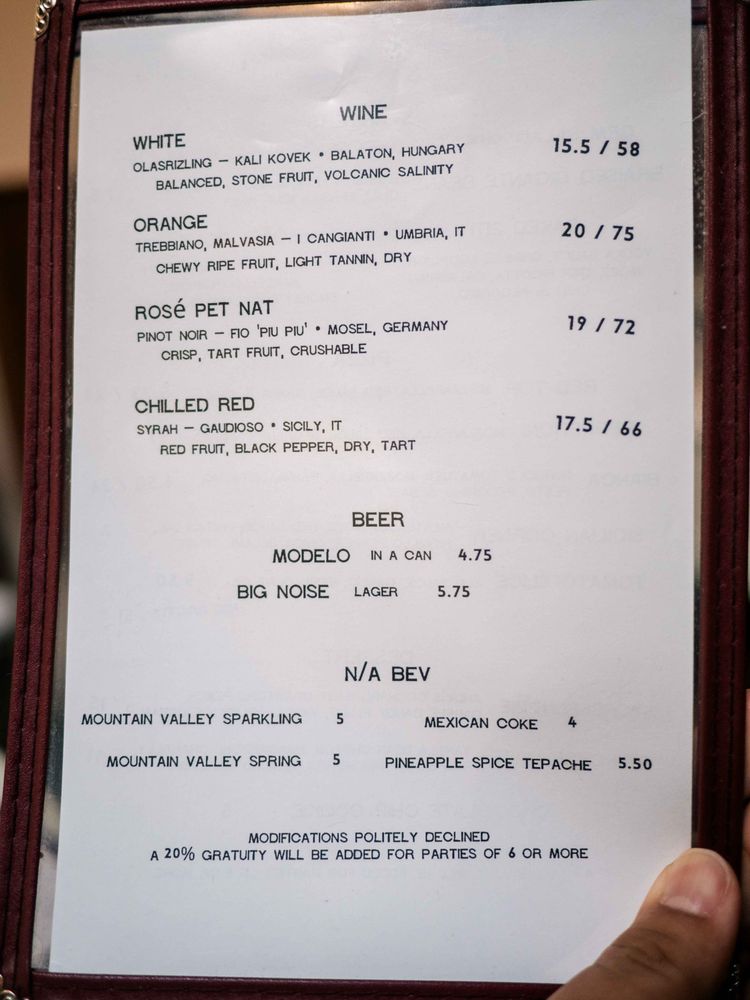 WINE
WHITE
OLASRIZLING — KALI KOVEK • BALATON, HUNGARY 15.5 / 58
BALANCED, STONE FRUIT, VOLCANIC SALINITY
ORANGE
TREBBIANO, MALVASIA — I CANGIANTI • UMBRIA, IT 20 / 75
CHEWY RIPE FRUIT, LIGHT TANNIN, DRY
ROSé PET NAT
PINOT NOIR — FIO 'PIU PIU' • MOSEL, GERMANY 19 / 72
CRISP, TART FRUIT, CRUSHABLE
CHILLED RED
SYRAH — GAUDIOSO • SICILY, IT 17.5 / 66
RED FRUIT, BLACK PEPPER, DRY, TART
BEER
MODELO IN A CAN 4.75
BIG NOISE LAGER 5.75
N/A BEV
MOUNTAIN VALLEY SPARKLING 5 MEXICAN COKE 4
MOUNTAIN VALLEY SPRING 5 PINEAPPLE SPICE TEPACHE 5.50
MODIFICATIONS POLITELY DECLINED
A 20% GRATUITY WILL BE ADDED FOR PARTIES OF 6 OR MORE